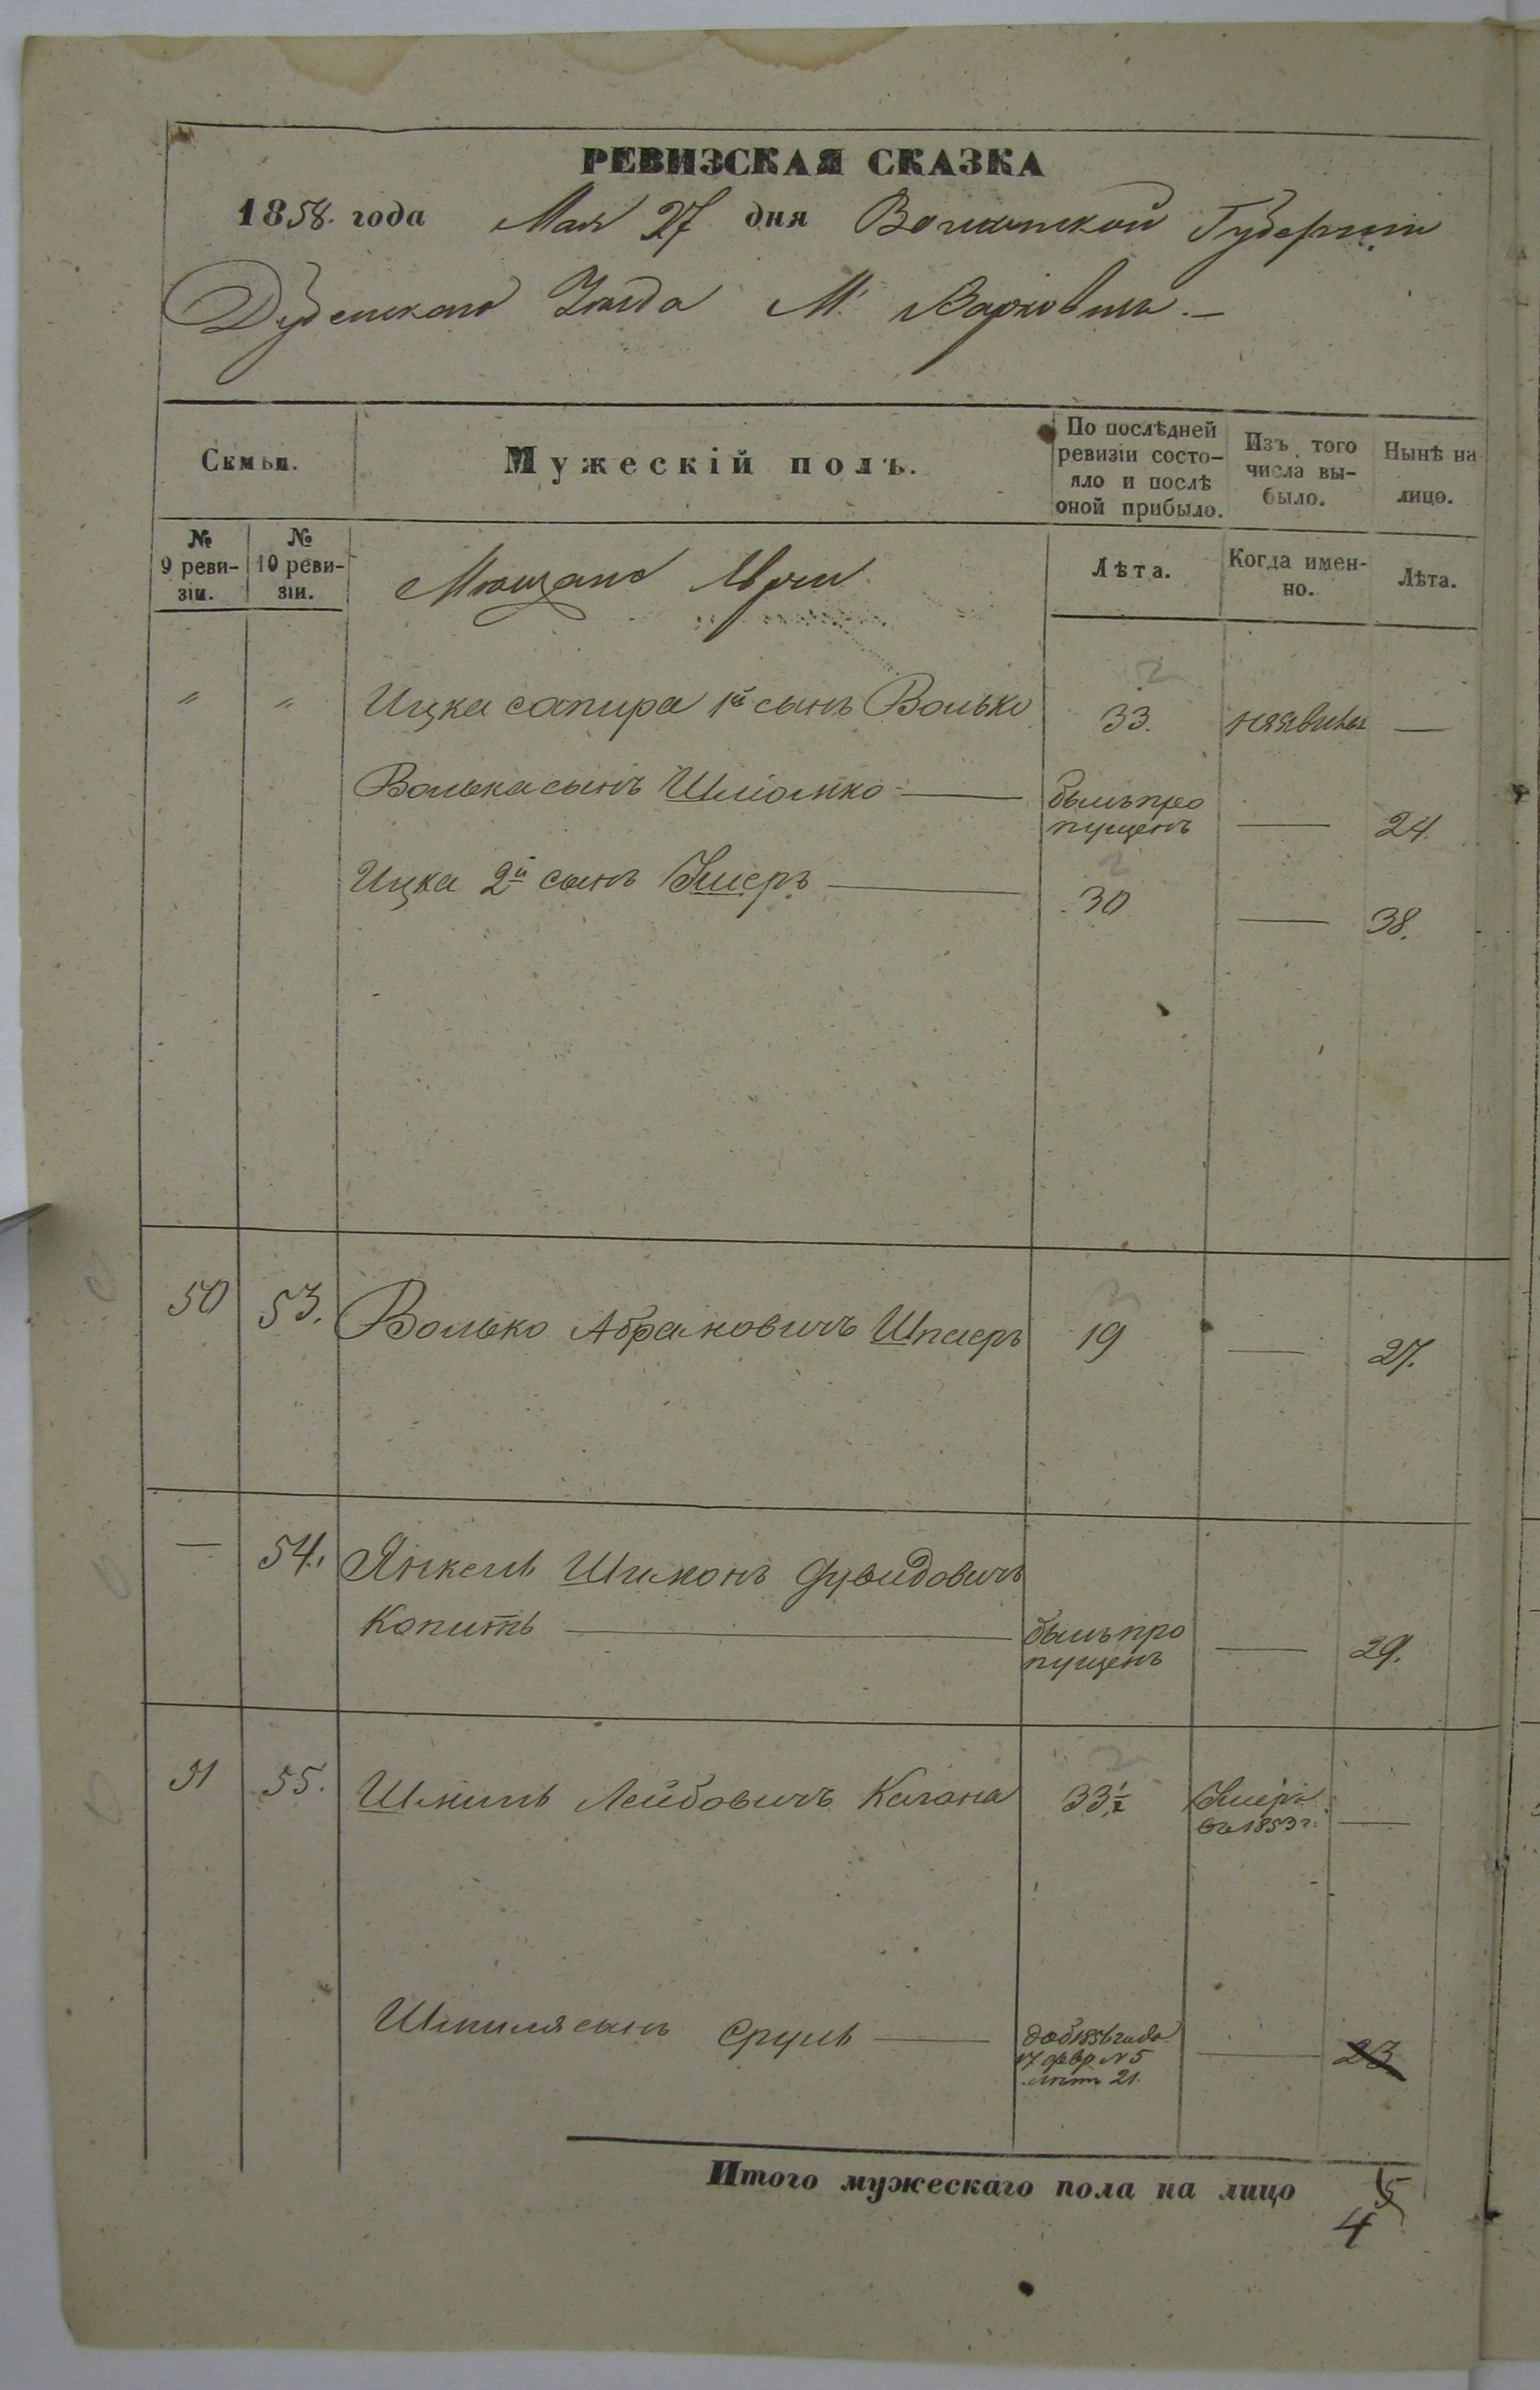 РЕВИЗСКАЯ СКАЗКА
1858. года Мая 27 дня Волынской Губерніи
Дубенскаго Уезда М. Варковичь. —
Семьи.
Мужескій полъ.
По послѣдней ревизіи состо-
яло и послѣ
оной прибыло.
Изъ того
числа вы-
было.
Нынѣ на
лицо.
№
9 реви-
зіи.
№
10 реви-
зіи.
Мещане Евреи
Лѣта.
Когда имен-
но.
Лѣта.
" " Ицка сапира 1й сынъ Волько 33. —
Волька сынъ Шліомко — былъ про
пущенъ — 24.
Ицка 2й сынъ — 30 — 38.
50 53. Волько Абрамовичъ 19 — 27.
— 54. Янкель Шимонъ Дувидовичъ
Копитъ — былъ про
пущенъ — 29.
51 55. Шмиль Лейбовичъ Кагана 33 1/2 Умеръ
въ 1853 г. —
Шмиля сынъ Сруль — доб 1856 года
17 февр N 5
лѣтъ 21. — 23
Итого мужескаго пола на лицо 5
4